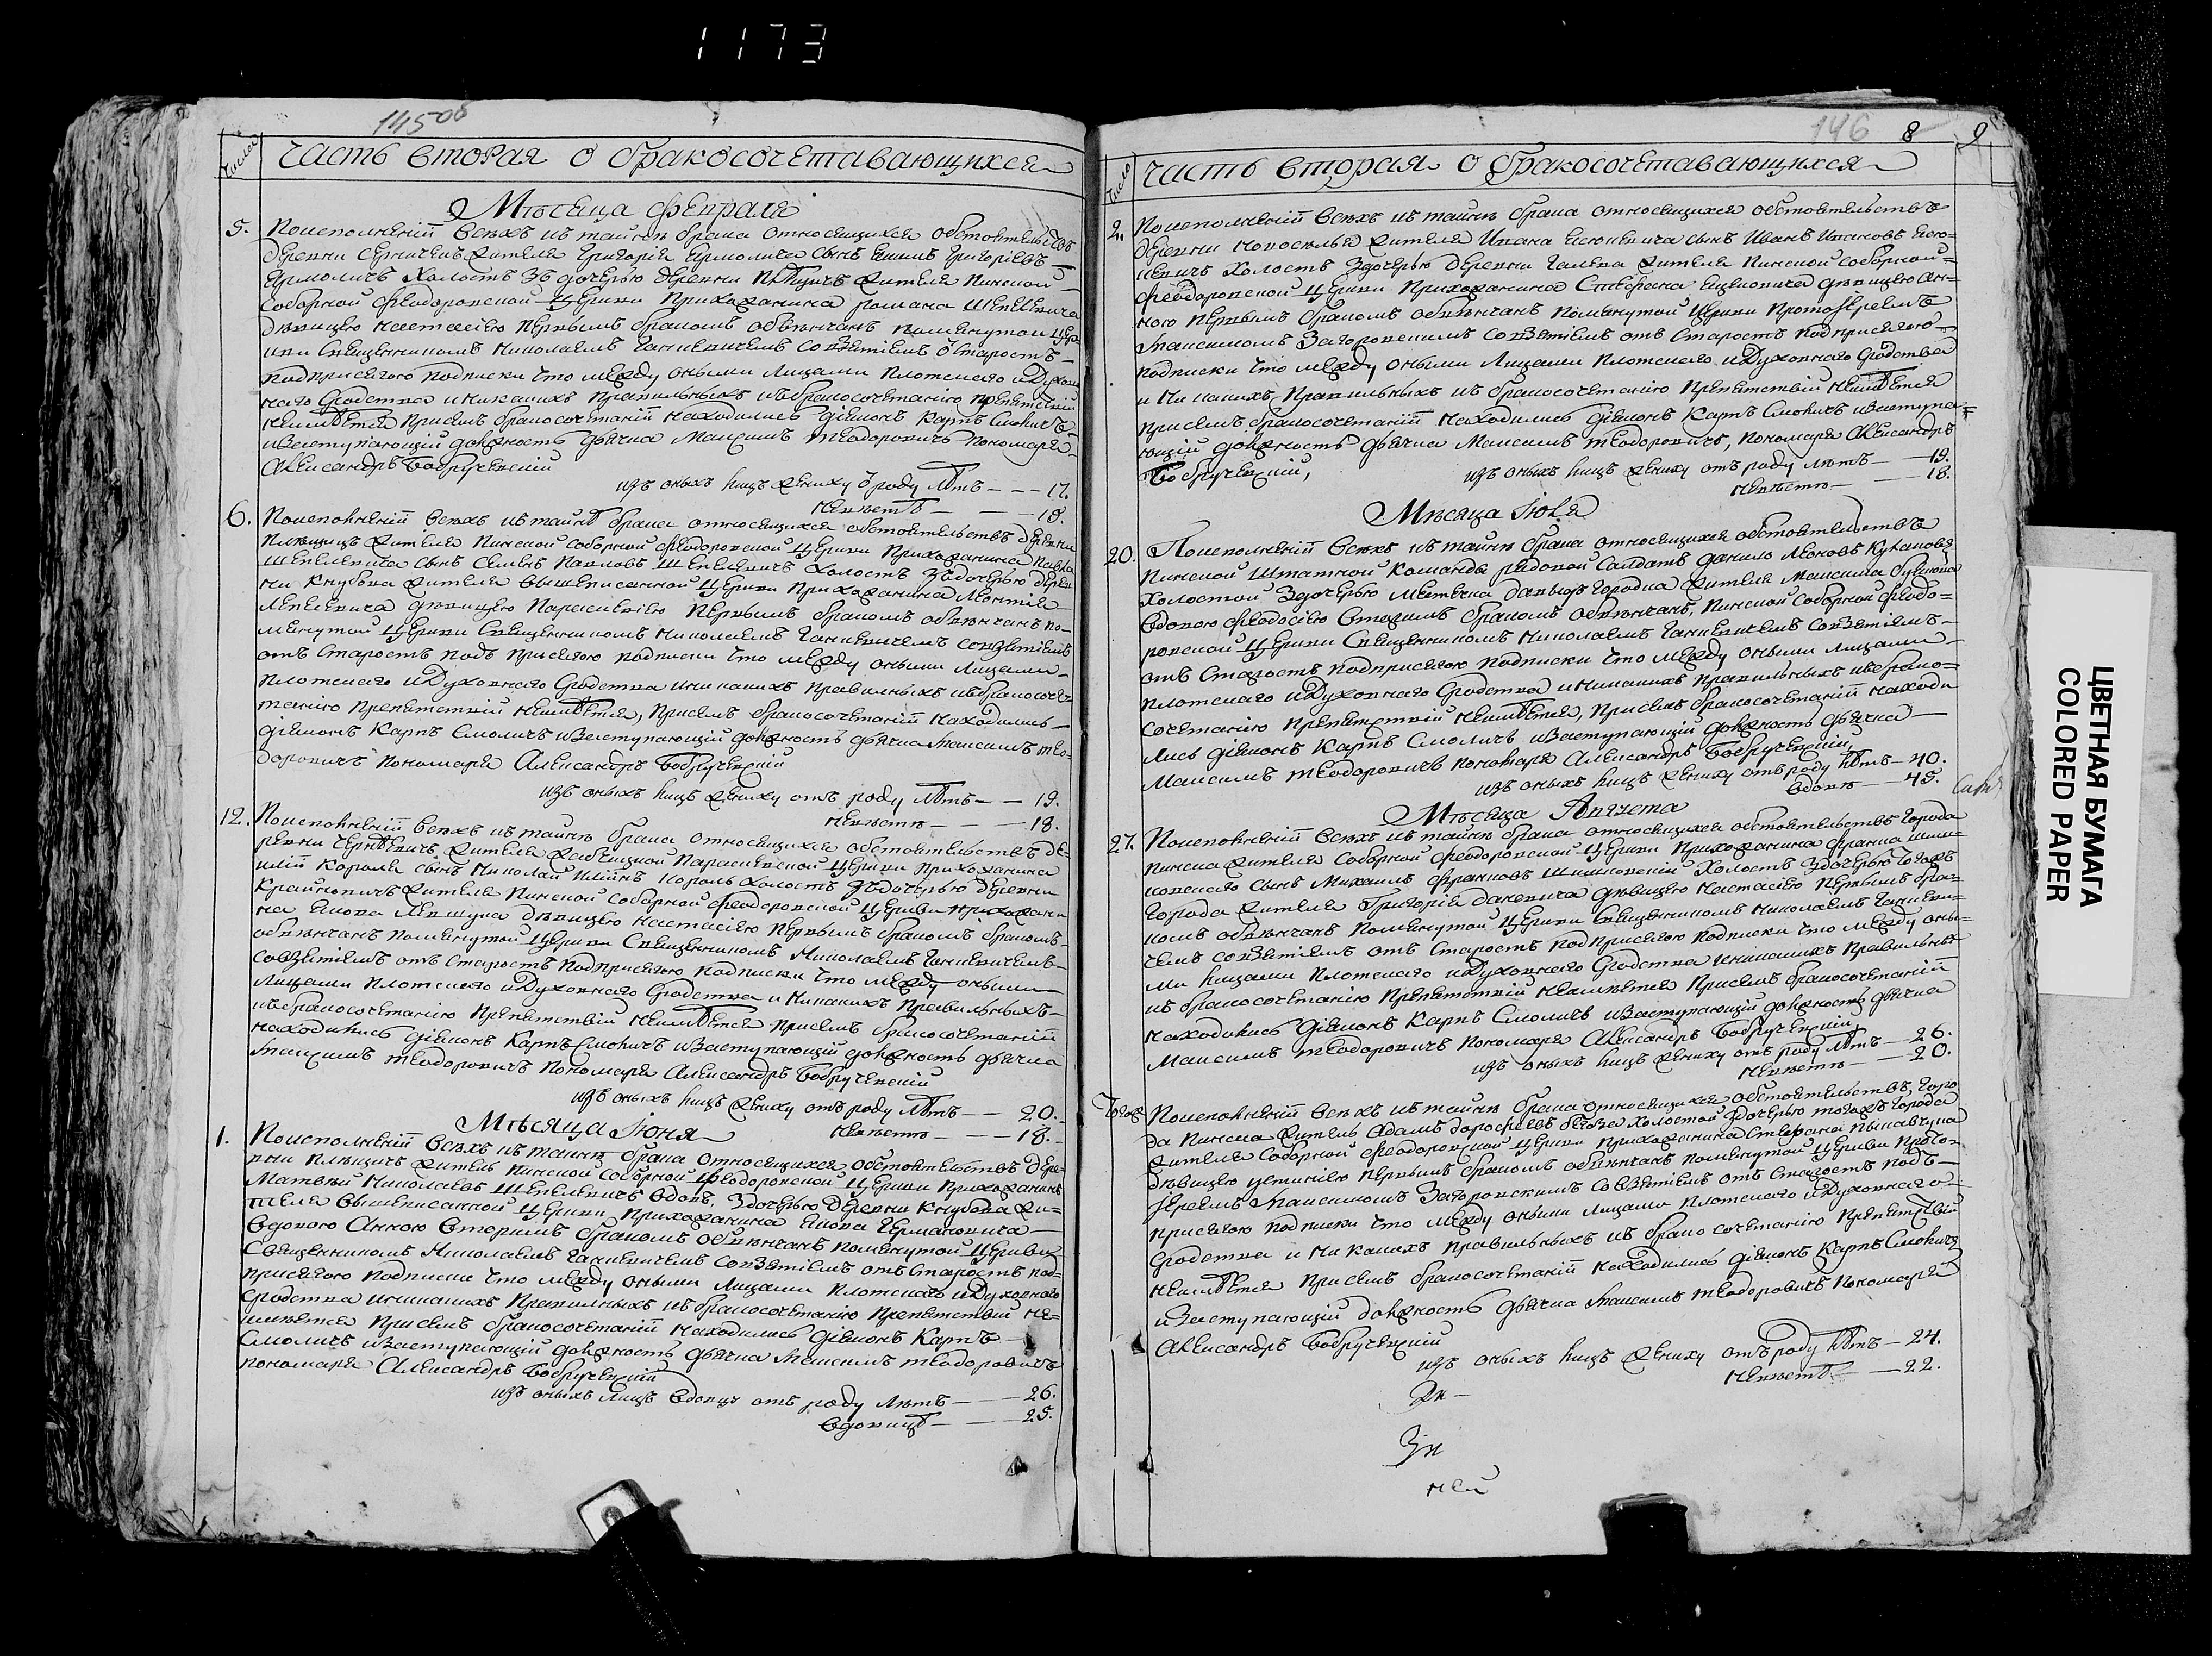 1173
145об
Число
Часть вторая о бракосочетавающихся
Месяца Февраля
5. Поисполненіи всехъ къ тайне брака относящихся обстоятельствъ
деревни Жителя Григорія Ермолича сынъ Григоріевъ
Ермоличъ холостъ здочерью деревни Жителя Пинской
Соборной Феодоровской церкви Прихожанина Романа Шепелевича
девицею Настасіею первымъ бракомъ обвенчанъ помянутой цер-
кви Священникомъ Николаемъ Ганкевичемъ совзятіемъ о Старостъ
подприсягою подписки что между оными лицами плотскаго идухов-
наго сродства иникакихъ правильныхъ кбракосочетанію препятствій
неимеется присемъ бракосочетаніи находились діяконъ Карпъ Смоличъ
изаступающій должность дьячка Максимъ Теодоровичъ пономаря
Александръ Бобручевскій
изъ оныхъ лицъ жениху о роду летъ — — 17.
невесте — — 18.
6. Поисполненіи всехъ къ тайне брака относящихся обстоятельствъ деревни
Плещицъ Жителя Пинской соборной Феодоровской церкви Прихожанина Павла
Шепелевича сынъ Семенъ Павловъ Шепелевичъ холостъ здочерью дерев
ни Кнубова жителя вышеписанной церкви прихожанина Леонтія
девицею Параскевіею первымъ бракомъ обвенчанъ по-
мянутой церкви Священникомъ Николаемъ Ганкевичемъ совзятіемъ
отъ Старостъ подъ присягою подписки что между оными лицами
плотскаго идуховнаго сродства иникакихъ правильныхъ кбракосоче-
танію препятствій неимеется, присемъ бракосочетаніи находились
діяконъ Карпъ Смоличъ изаступающій должность дьячка Максимъ Тео-
доровичъ пономаря Александръ Бобручевскій
изъ оныхъ лицъ жениху отъ роду летъ — — 19.
невесте — — 18.
12. Поисполненіи всехъ къ тайне брака относящихся обстоятельствъ де-
ревни Жителя Параскевской церкви прихожанина
Иліи Короля сынъ Николай Иліинъ Король холостъ здочерью деревни
Крайновичъ жителя Пинской соборной Феодоровской церкви прихожани
на Якова Левшука девицею Настасіею первымъ бракомъ бракомъ
обвенчанъ помянутой церкви Священникомъ Николаемъ Ганкевичемъ
совзятіемъ отъ Старостъ подприсягою подписки что между оными
лицами плотскаго идуховнаго сродства и никакихъ правильныхъ
кбракосочетанію препятствій неимеется присемъ бракосочетаніи
находились діяконъ Карпъ Смоличъ изаступающій должность дьячка
Максимъ Теодоровичъ пономаря Александръ Бобручевскій
изъ оныхъ лицъ жениху отъ роду летъ — — 20.
Месяца Іюня
невесте — — 18.
1. Поисполненіи всехъ къ тайне брака относящихся обстоятельствъ дере-
вни Плещицъ житель Пинской соборной Феодоровской церкви прихожанинъ
Матвей Николаевъ Шепелевичъ вдовъ, здочерью деревни Кнубова жи-
теля вышеписанной церкви прихожанина Якова Германовича
вдовою Анною вторымъ бракомъ обвенчанъ помянутой церкви
Священникомъ Николаемъ Ганкевичемъ совзятіемъ отъ Старостъ под-
присягою подписки что между оными лицами плотскаго идуховнаго
сродства иникакихъ правильныхъ кбракосочетанію препятствій не-
имеется присемъ бракосочетаніи находились діяконъ Карпъ
Смоличъ изаступающій должность дьячка Максимъ Теодоровичъ
пономаря Александръ Бобручевскій
изъ оныхъ лицъ вдовцу отъ роду летъ — — 26.
вдовице — — 25.
146 8 9
Число
Часть вторая о бракосочетавающихся
2. Поисполненіи всехъ къ тайне брака относящихся обстоятельствъ
деревни Новоселья жителя Ивана сынъ Иванъ Ивановъ
холостъ здочерью деревни Галева жителя Пинской соборной
Феодоровской церкви прихожанина Стефана девицею Ан-
ною первымъ бракомъ обвенчанъ помянутой церкви протоіереемъ
Максимомъ Загоровскимъ совзятіемъ отъ Старостъ подприсягою
подписки что между оными лицами плотскаго идуховнаго сродства
и никакихъ правильныхъ къ бракосочетанію препятствій неимеется
присемъ бракосочетаніи находились діяконъ Карпъ Смоличъ изаступа-
ющій должность дьячка Максимъ Теодоровичъ, пономаря Александръ
Бобручевскій,
изъ оныхъ лицъ жениху отъ роду летъ — 19.
невесте — — 18.
Месяца Іюля
20. Поисполненіи всехъ къ тайне брака относящихся обстоятельствъ
Пинской штатной команды рядовой салдатъ Данило Леоновъ
холостой здочерью местечка Давыдъ городка жителя Максима
вдовою Феодосіею вторымъ бракомъ обвенчанъ, Пинской соборной Феодо-
ровской церкви Священникомъ Николаемъ Ганкевичемъ совзятіемъ
отъ Старостъ подприсягою подписки что между оными лицами
плотскаго идуховнаго сродства иникакихъ правильныхъ кбрако-
сочетанію препятствій неимеется, присемъ бракосочетаніи находи
лись діяконъ Карпъ Смоличъ изаступающій должность дьячка
Максимъ Теодоровичъ пономаря Александръ Бобручевскій,
изъ оныхъ лицъ жениху отъ роду летъ — 40.
вдове — 45.
Месяца Августа
27. Поисполненіи всехъ къ тайне брака относящихся обстоятельствъ города
Пинска жителя соборной Феодоровской церкви прихожанина Франка
сынъ Михаилъ Франковъ холостъ здочерью тогожъ
города жителя Григорія Даневича девицею Настасіею первымъ бра-
комъ обвенчанъ помянутой церкви Священникомъ Николаемъ Ганкеви-
чемъ совзятіемъ отъ Старостъ подприсягою подписки что между оны-
ми лицами плотскаго идуховнаго сродства иникакихъ правильныхъ
къ бракосочетанію препятствій неимеется присемъ бракосочетаніи
находились діяконъ Карпъ Смоличъ изаступающій должность дьячка
Максимъ Теодоровичъ пономаря Александръ Бобручевскій,
изъ оныхъ лицъ жениху отъ роду летъ — 26.
невесте — — 20.
Тогож Поисполненіи всехъ къ тайне брака относящихся обстоятельствъ, горо
да Пинска житель Адамъ Дорофеевъ холостой здочерью тогожъ города
жителя соборной Феодоровской церкви прихожанина Стефана
девицею Устиніею первымъ бракомъ обвенчанъ помянутой церкви прото-
іереемъ Максимомъ Загоровскимъ совзятіемъ отъ Старостъ подъ
присягою подписки что между оными лицами плотскаго идуховнаго
сродства и никакихъ правильныхъ къ бракосочетанію препятствій
неимеется присемъ бракосочетаніи находились діяконъ Карпъ Смоличъ
изаступающій должность дьячка Максимъ Теодоровичъ пономаря
Александръ Бобручевскій
изъ оныхъ лицъ жениху отъ роду летъ — 24.
невесте — — 22.
ЦВЕТНАЯ БУМАГА
COLORED PAPER